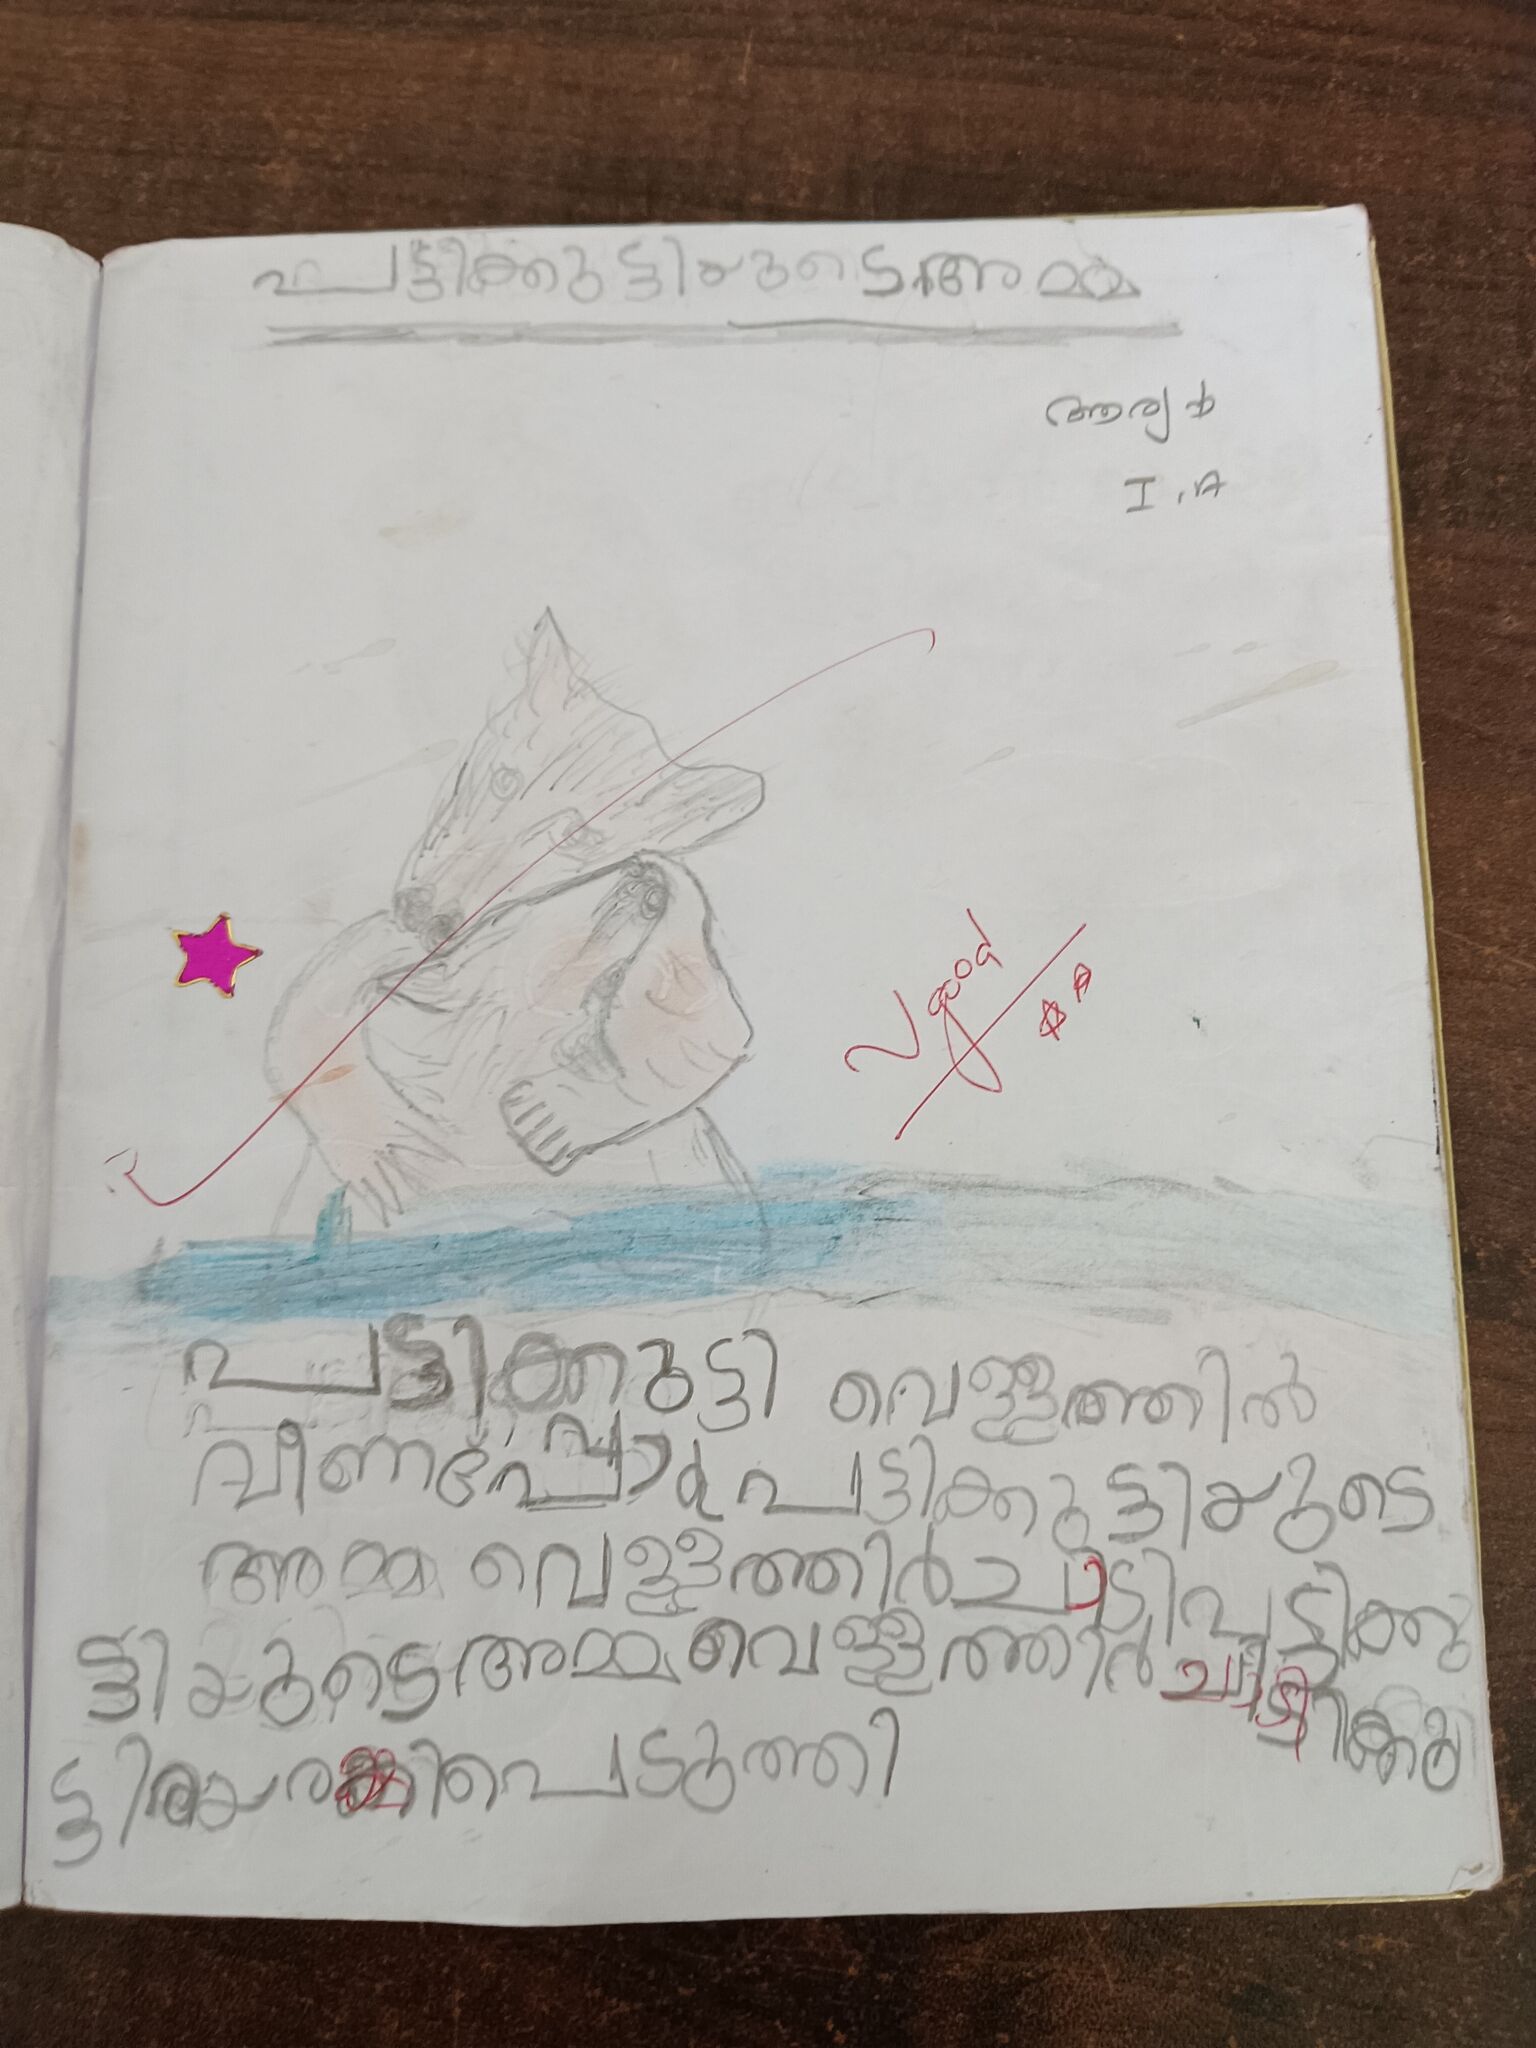 പട്ടിക്കുട്ടിയുടെ അമ്മ
ആര്യൻ
I.A
V good
പട്ടിക്കുട്ടി വെള്ളത്തിൽ
വീണപ്പോൾ പട്ടിക്കുട്ടിയുടെ
അമ്മ വെള്ളത്തിൽ ചാടി പട്ടിക്കു
ട്ടിയുടെ അമ്മ വെള്ളത്തിൽ ചാടി പട്ടിക്കു
ട്ടിയെ രക്ഷപെടുത്തി